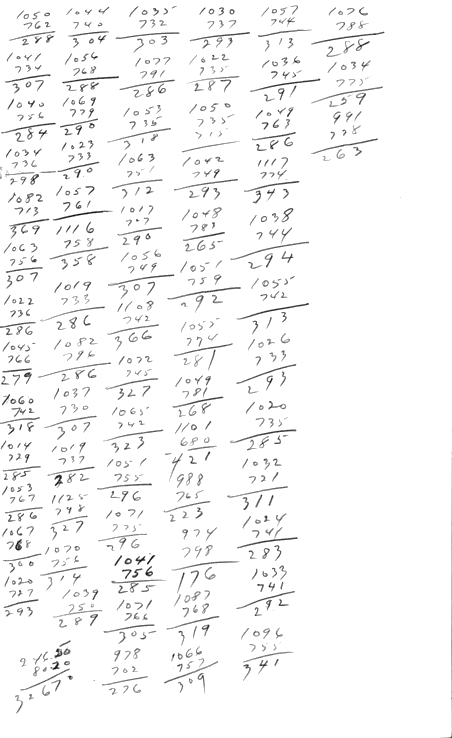 1050
762
288
1041
734
307
1040
756
284
1034
736
298
1082
713
369
1063
756
307
1022
736
286
1045
766
279
1060
742
318
1014
729
285
1053
767
286
1067
768
300
1020
727
293
1044
740
304
1056
768
288
1069
779
290
1023
733
290
1057
761
1116
758
358
1019
733
286
1082
796
286
1037
730
307
1019
737
282
1125
798
327
1070
756
314
1039
750
289
1035
732
303
1077
791
286
1053
735
318
1063
751
312
1017
727
290
1056
749
307
1108
742
366
1072
745
327
1065
742
323
1051
755
296
1071
775
296
1041
756
285
1071
766
305
978
702
276
1030
737
293
1022
735
287
1050
735
315
1042
749
293
1048
783
265
1051
759
292
1055
774
281
1049
781
268
1101
680
421
988
765
223
974
798
176
1087
768
319
1066
757
309
1057
744
313
1036
745
291
1049
763
286
1117
774
343
1038
744
294
1055
742
313
1026
733
293
1020
735
285
1032
721
311
1024
741
283
1033
741
292
1096
755
341
1076
788
288
1034
775
259
991
728
263